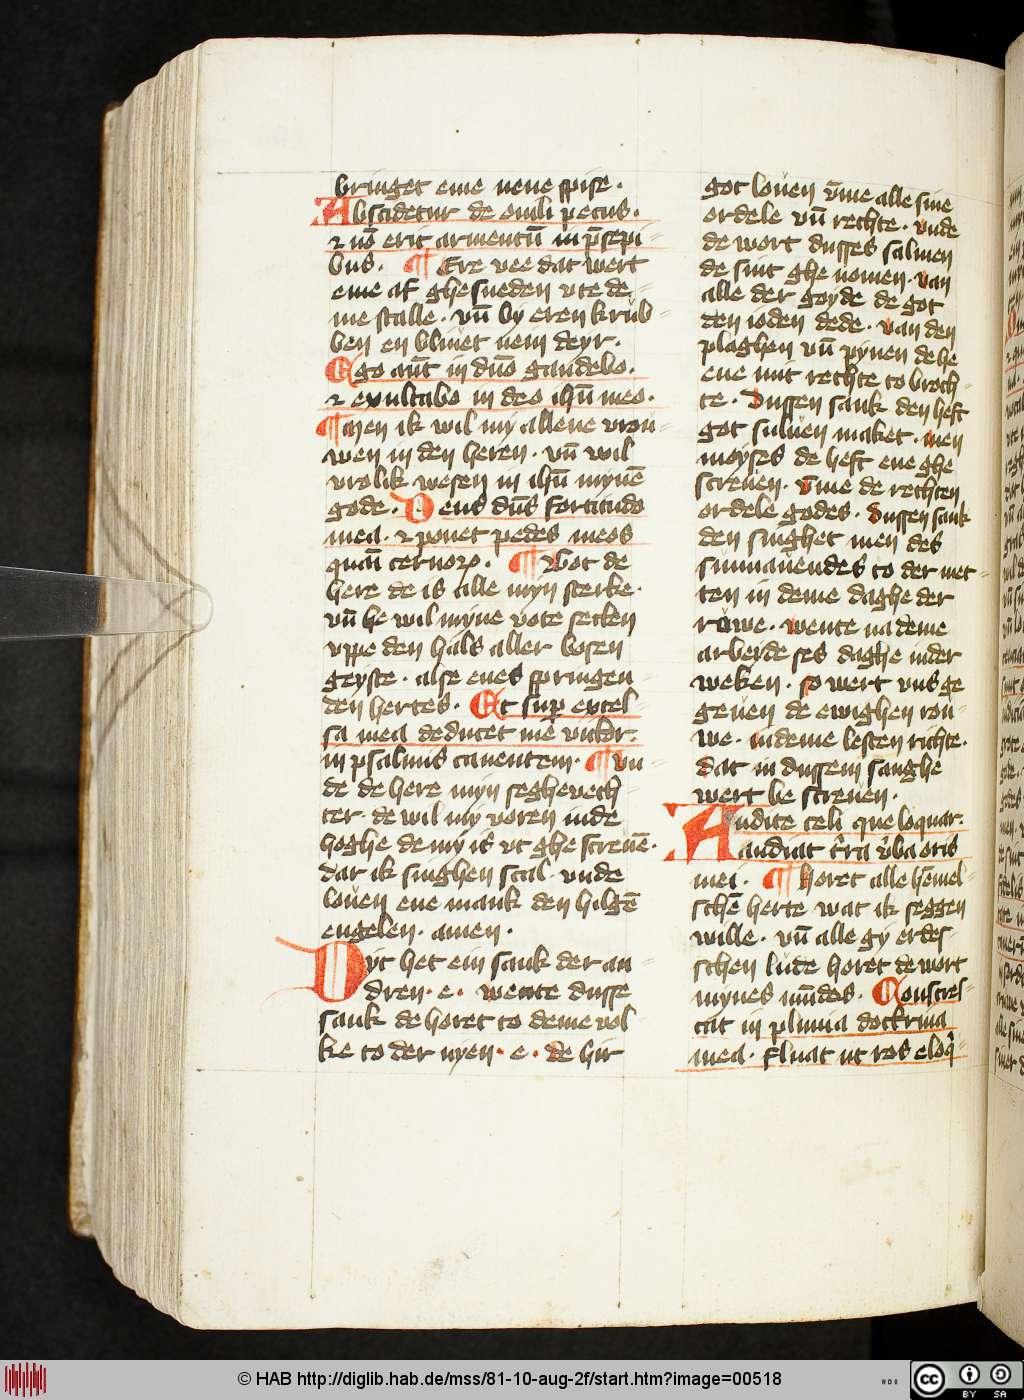 bringet eine neue spise ·
Abscidetur de ouili pecus ·
⁊ nō erit armentū in p̄sepi
bus · ¶ Ere vee dat wert
eme af ghesneden vte de
me stalle · vn̄ by eren krub
ben en blivet nein deyr ·
Ego aūt in dn̄o gaudebo ·
⁊ exultabo in deo ihū meo ·
¶ Men ik wil my allene vrou
wen in den heren · vn̄ wil
vrolik wesen in ihū mynē
gode · Deus dn̄s fortitudo
mea · ⁊ ponet pedes meos
quasi ceruoꝝ · ¶ Got de
here de is alle myn sterke ·
vn̄ he wil myne vote setten
vppe den hals aller bosen
geyste · alse enes springen
den hertes · Et sup̄ excel
sa mea deducet me victor
in psalmis canentem · ¶ vn
de de here myn seghevech
ter · de wil my voren in de
hoghe de my is vt ghe screuē ·
dar ik singhen scal · vnde
loven ene mank den hilgē
engelen · amen ·
Dyt het ein sank der an
dren · e · wente dusse
sank de horet to deme vol
ke to der nyen · e · de hir
got loven vm̄e alle sine
ordele vn̄ rechte · vnde
de wort dusses salmen
de sint ghe nomen · van
alle der goyde de got
den ioden dede · van den
plaghen vn̄ pynen de he
ene mit rechte to broch
te · Dussen sank den heft
got sulven maket · men
moyses de heft ene ghe
screven · vme de rechten
ordele godes · Dussen sank
den singhet men des
sunnavendes to der met
ten in deme daghe der
rawe · wente na deme
arbeide ses daghe in der
weken · so wert vns ge
geven de ewighen rou
we · in deme lesten richte ·
dat in dussem sanghe
wert be screven ·
Audite celi que loquar ·
audiat t̄ra v̄ba oris
mei · ¶ Horet alle hēmel
schē herte wat ik seggen
wille · vn̄ alle gy erdes
schen lude horet de wort
mynes mūdes · Concres
cat in pluuia doctrina
mea · fluat ut ros eloq̄
© HAB http://diglib.hab.de/mss/81-10-aug-2f/start.htm?image=00518
cc
BY SA